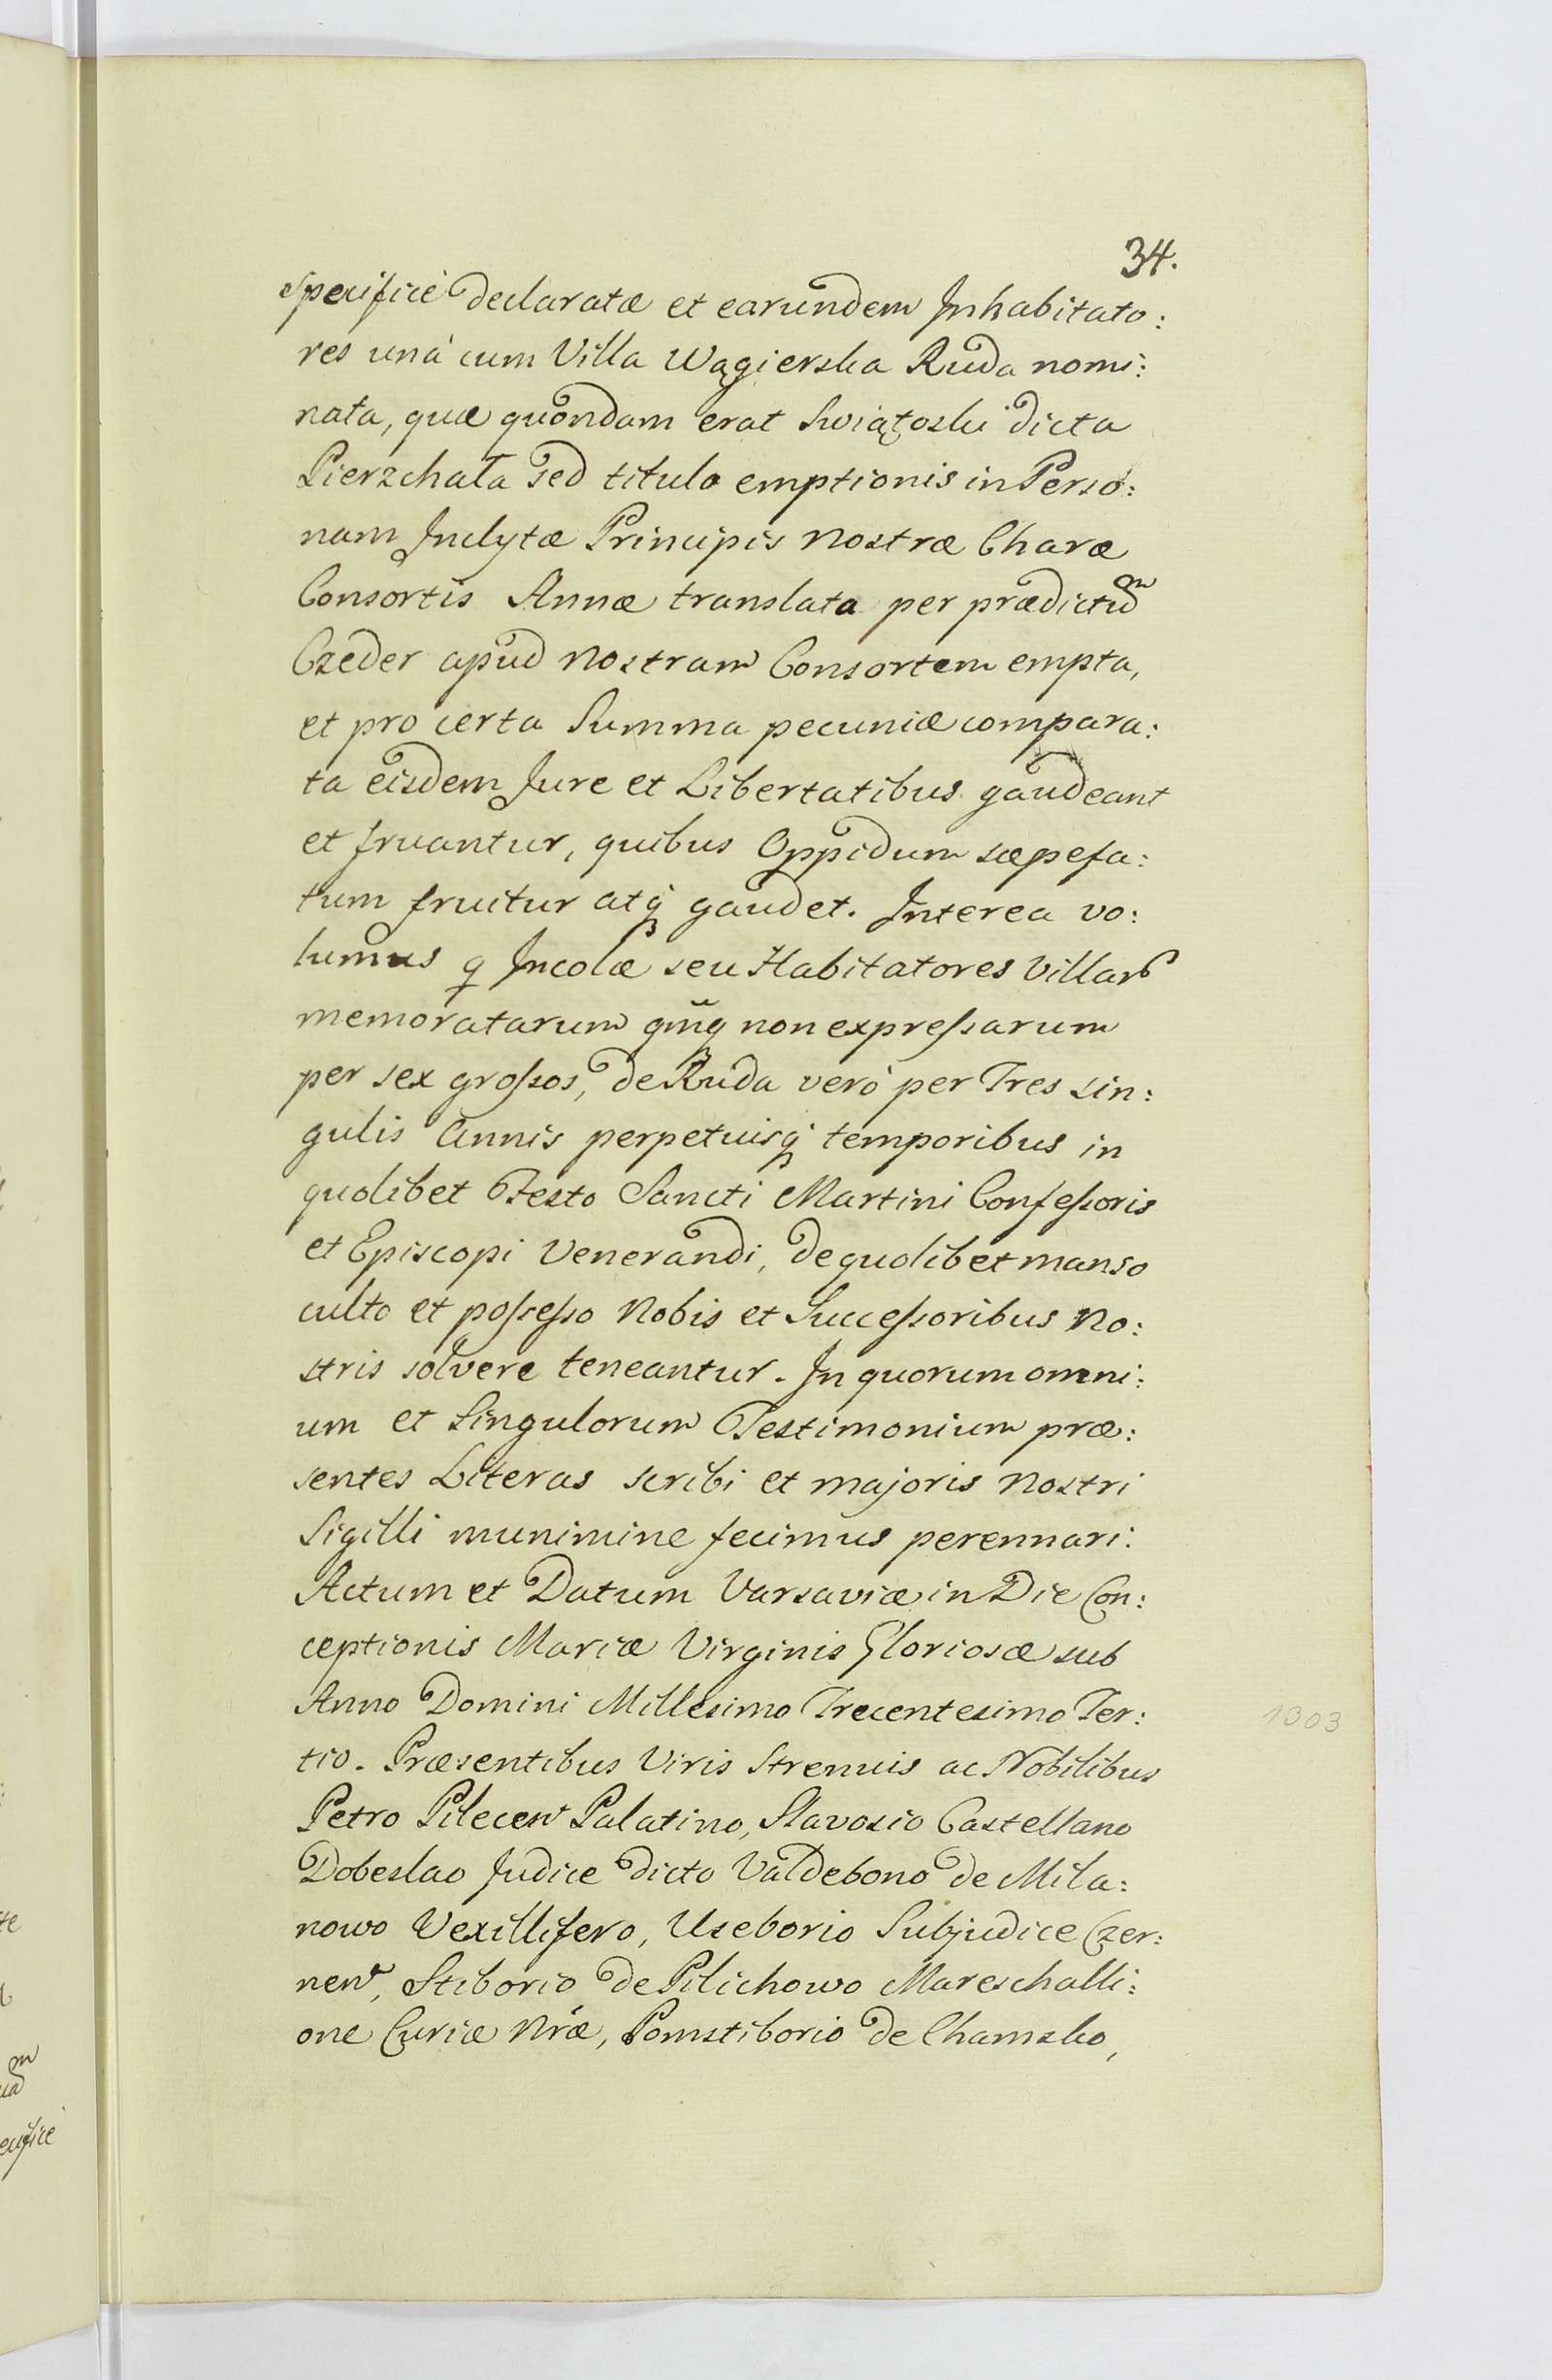 34.
specificè declaratæ et earundem Inhabitato:
res unà cum Villa Wągierska Ruda nomi:
nata, quæ quondam erat Swiątoski dicta
Pierzchała sed titulo emptionis in Perso:
nam Inclytæ Principis nostræ Charæ
Consortis Annæ translata per prædictu͠m
Czeder apud nostram Consortem empta,
et pro certa Summa pecuniæ compara:
ta eisdem Jure et Libertatibus gaudeant
et fruantur, quibus Oppidum sæpefa:
tum fruitur atq́ gaudet. Interea vo:
lumus q Incolæ seu Habitatores Villar
memoratarum non expressarum
per sex grossos, de Ruda verò per Tres sin:
gulis Annis perpetuisq́ temporibus in
quolibet Festo Sancti Martini Confessoris
et Episcopi Venerandi, de quolibet manso
culto et possesso Nobis et Successoribus No:
stris solvere teneantur. In quorum omni:
um et Singulorum Testimonium præ:
sentes Literas scribi et majoris nostri
Sigilli munimine fecimus perennari.
Actum et Datum Varsaviæ in Die Con:
ceptionis Mariæ Virginis Gloriosæ sub
Anno Domini Millesimo Trecentesimo Ter:
1303
tio. Præsentibus Viris Strenuis ac Nobilibus
Petro Pilecen Palatino, Slavosio Castellano
Dobeslao Judice dicto Valdebono de Mila:
nowo Vexillifero, Useborio Subjudice Czer:
nen, Stiborio de Pilichowo Mareschalli:
one Curiæ Nræ, Pomstiborio de Chamsko,